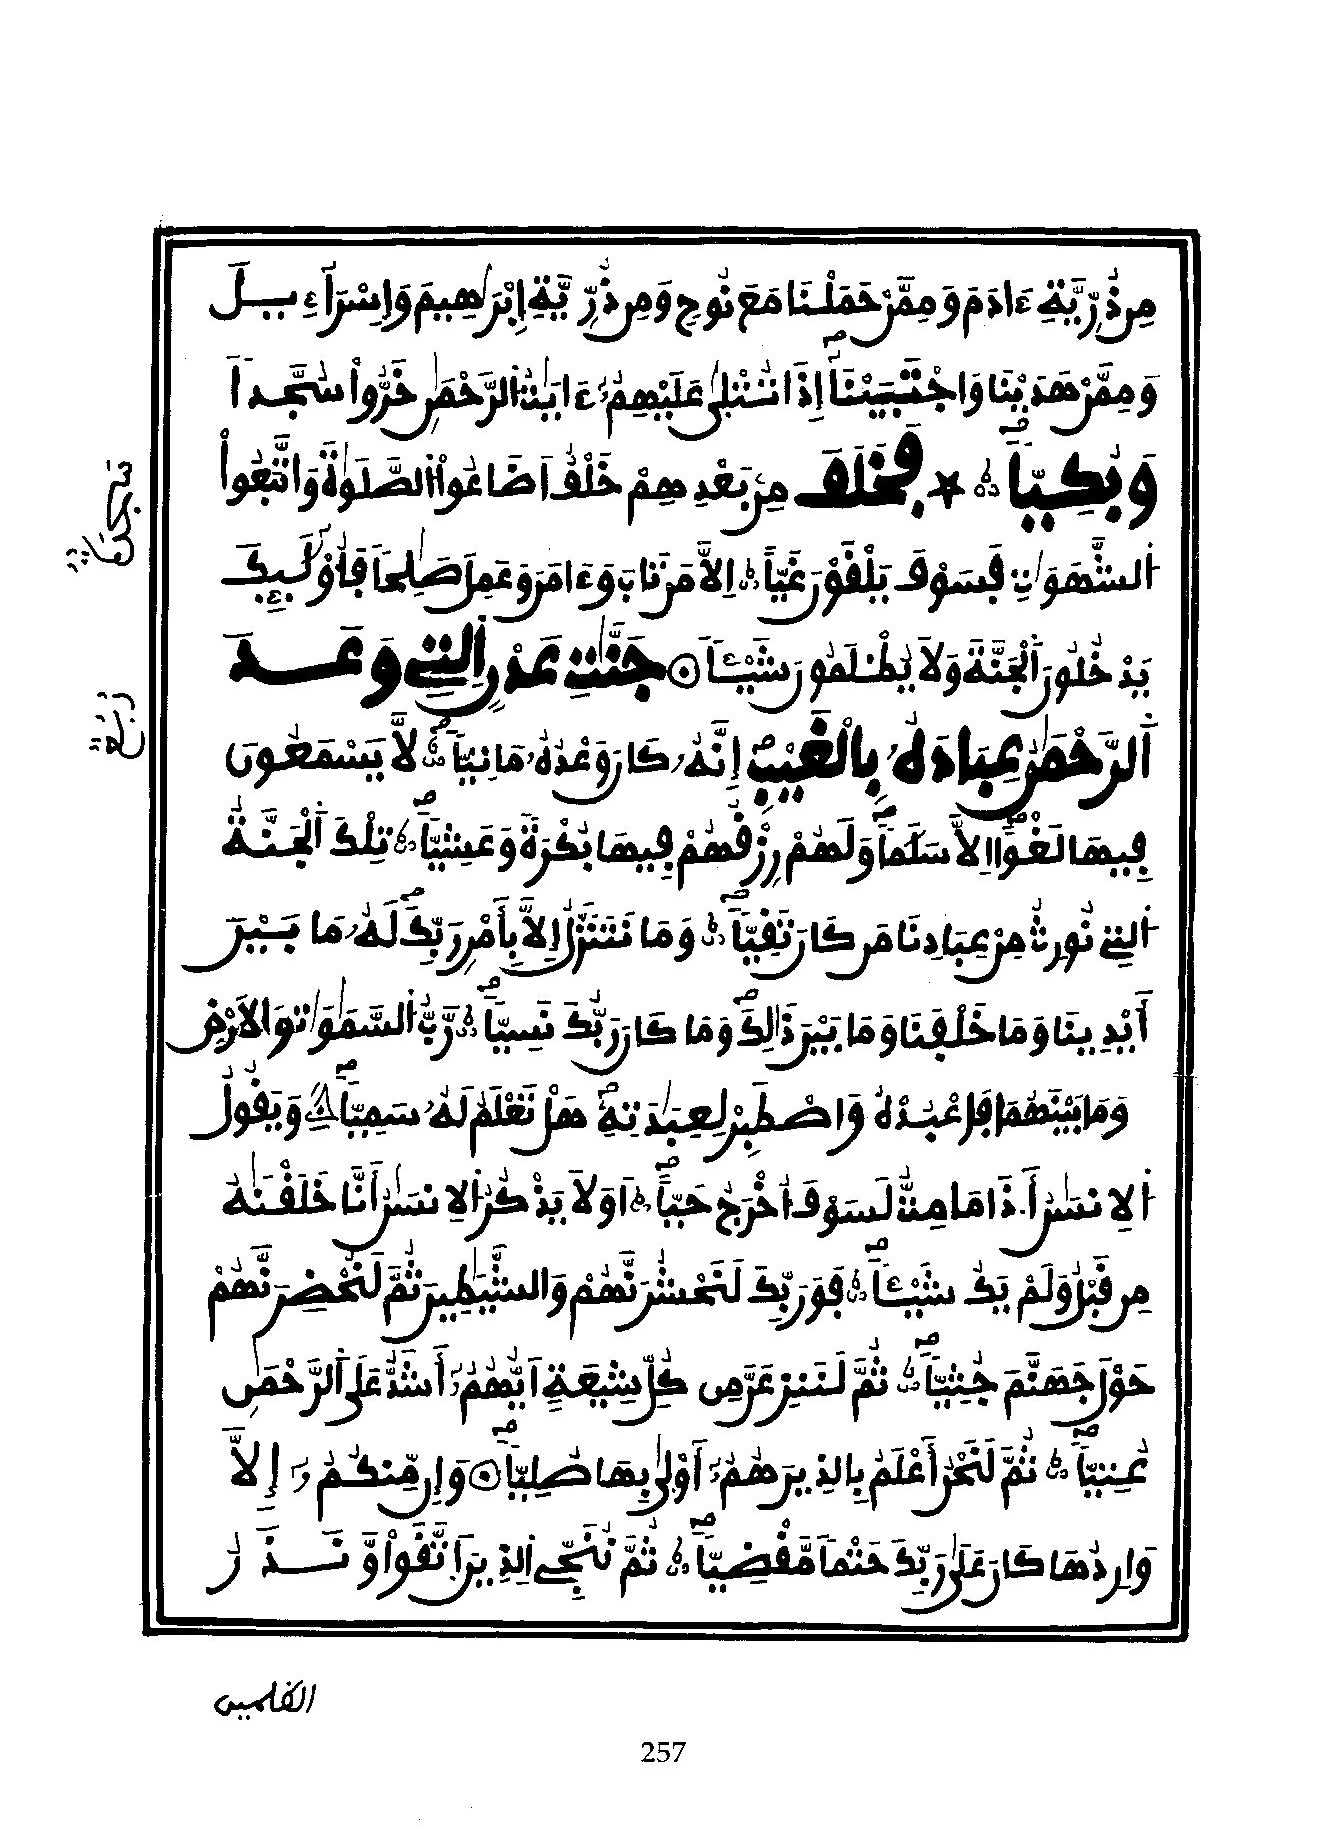 مِن ذُرِّيَّةِ ءَادَمَ وَمِمَّنْ حَمَلْنَا مَعَ نُوحٍ وَمِن ذُرِّيَّةِ إِبْرَٰهِيمَ وَإِسْرَآءِيلَ
وَمِمَّنْ هَدَيْنَا وَاجْتَبَيْنَآ إِذَا تُتْلَىٰ عَلَيْهِمُۥٓ ءَايَٰتُ الرَّحْمَٰنِ خَرُّواْ سُجَّداً
وَبُكِيّاً ۞ فَخَلَفَ مِنۢ بَعْدِهِمْ خَلْفٌ اَضَاعُواْ الصَّلَوٰةَ وَاتَّبَعُواْ
سجدة
الشَّهَوَٰتِ فَسَوْفَ يَلْقَوْنَ غَيّاً اِلَّا مَن تَابَ وَءَامَنَ وَعَمِلَ صَٰلِحاً فَأُوْلَٰٓئِكَ
يَدْخُلُونَ اَلْجَنَّةَ وَلَا يُظْلَمُونَ شَيْـٔاً جَنَّٰتِ عَدْنٍ اِلتِي وَعَدَ
ربع
اَلرَّحْمَٰنُ عِبَادَهُۥ بِالْغَيْبِ إِنَّهُۥ كَانَ وَعْدُهُۥ مَاتِيّاً لَّا يَسْمَعُونَ
فِيهَا لَغْواً اِلَّا سَلَٰماً وَلَهُمْ رِزْقُهُمْ فِيهَا بُكْرَةً وَعَشِيّاً تِلْكَ اَلْجَنَّةُ
اُلتِي نُورِثُ مِنْ عِبَادِنَا مَن كَانَ تَقِيّاً وَمَا نَتَنَزَّلُ إِلَّا بِأَمْرِ رَبِّكَ لَهُۥ مَا بَيْنَ
أَيْدِينَا وَمَا خَلْفَنَا وَمَا بَيْنَ ذَٰلِكَ وَمَا كَانَ رَبُّكَ نَسِيّاً رَّبُّ السَّمَٰوَٰتِ وَالَارْضِ
وَمَا بَيْنَهُمَا فَاعْبُدْهُ وَاصْطَبِرْ لِعِبَٰدَتِهِۦ هَلْ تَعْلَمُ لَهُۥ سَمِيّاً وَيَقُولُ
اُلِانسَٰنُ أَ۟ذَا مَا مِتُّ لَسَوْفَ أُخْرَجُ حَيّاً اَوَلَا يَذْكُرُ اُلِانسَٰنُ أَنَّا خَلَقْنَٰهُ
مِن قَبْلُ وَلَمْ يَكُ شَيْـٔاً فَوَرَبِّكَ لَنَحْشُرَنَّهُمْ وَالشَّيَٰطِينَ ثُمَّ لَنُحْضِرَنَّهُمْ
حَوْلَ جَهَنَّمَ جُثِيّاً ثُمَّ لَنَنزِعَنَّ مِن كُلِّ شِيعَةٍ اَيُّهُمُۥٓ أَشَدُّ عَلَى اَلرَّحْمَٰنِ
عُتِيّاً ثُمَّ لَنَحْنُ أَعْلَمُ بِالذِينَ هُمُۥٓ أَوْلَىٰ بِهَا صُلِيّاً وَإِن مِّنكُمُۥٓ إِلَّا
وَارِدُهَا كَانَ عَلَىٰ رَبِّكَ حَتْماً مَّقْضِيّاً ثُمَّ نُنَجِّي اِلذِينَ اَتَّقَواْ وَّنَذَرُ
الظلمين
257